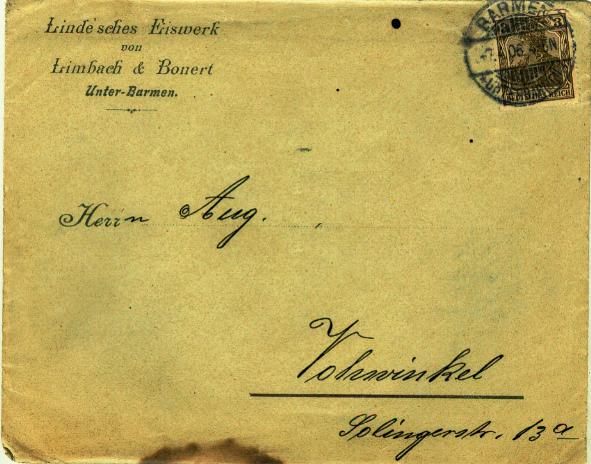 Linde'sches Eiswerk
von
Limbach & Bonert
Unter-Barmen.
BARMEN
3
06.
REICH
Herrn Aug.
Vohwinkel
Solingerstr. 13a